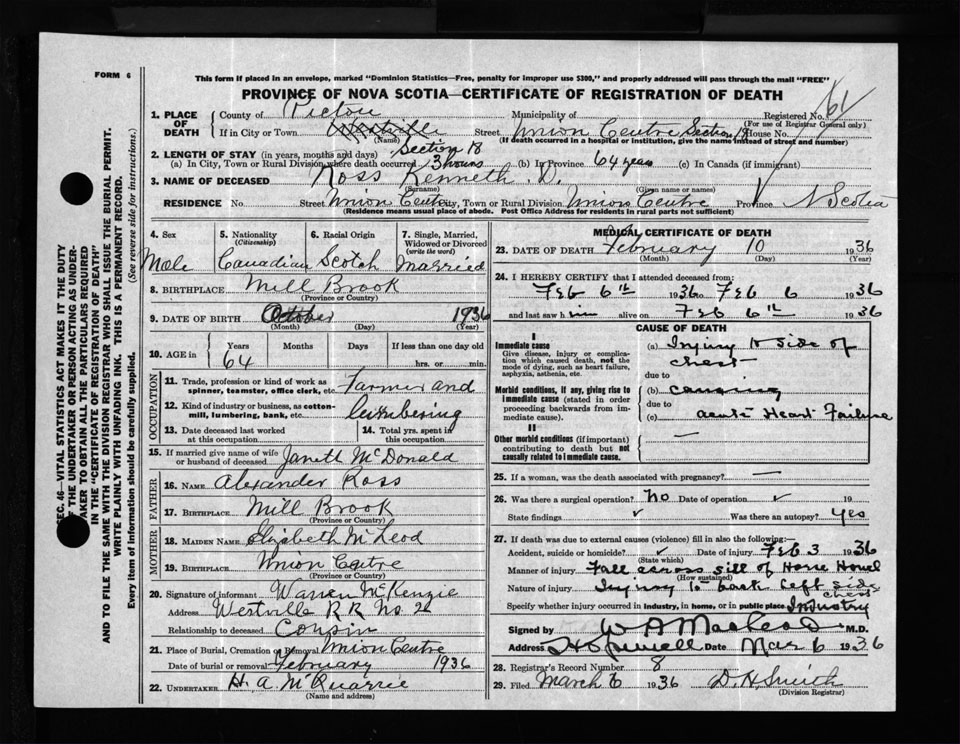 FORM 6
This form if placed in an envelope, marked "Dominion Statistics—Free, penalty for improper use $300," and properly addressed will pass through the mail "FREE"
PROVINCE OF NOVA SCOTIA—CERTIFICATE OF REGISTRATION OF DEATH
Registered No. 61
(For use of Registrar General only)
1. PLACE OF DEATH
County of Pictou Municipality of
If in City or Town Westville Street Union Centre Section 18 House No.
(Name) (If death occurred in a hospital or institution, give the name instead of street and number)
2. LENGTH OF STAY (in years, months and days) Section 18
(a) In City, Town or Rural Division where death occurred 3 hours (b) In Province 64 years (c) In Canada (if immigrant)
3. NAME OF DECEASED Ross Kenneth D.
(Surname) (Given name or names)
RESIDENCE No. Street Union Centre City, Town or Rural Division Union Centre Province N Scotia
(Residence means usual place of abode. Post Office Address for residents in rural parts not sufficient)
4. Sex Male
5. Nationality (Citizenship) Canadian
6. Racial Origin Scotch
7. Single, Married, Widowed or Divorced (write the word) Married
8. BIRTHPLACE Mill Brook
(Province or Country)
9. DATE OF BIRTH October 1936
(Month) (Day) (Year)
10. AGE in Years Months Days If less than one day old
64 hrs. or min.
OCCUPATION
11. Trade, profession or kind of work as spinner, teamster, office clerk, etc. Farmer and
12. Kind of industry or business, as cotton-mill, lumbering, bank, etc. Lumbering
13. Date deceased last worked at this occupation
14. Total yrs. spent in this occupation
15. If married give name of wife or husband of deceased Janeth McDonald
FATHER
16. NAME Alexander Ross
17. BIRTHPLACE Mill Brook
(Province or Country)
MOTHER
18. MAIDEN NAME Elizabeth McLeod
19. BIRTHPLACE Union Centre
(Province or Country)
20. Signature of informant Warren McKenzie
Address Westville R R No. 2
Relationship to deceased Cousin
21. Place of Burial, Cremation or Removal Union Centre
Date of burial or removal February 1936
22. UNDERTAKER H. A. McQuarrie
(Name and address)
MEDICAL CERTIFICATE OF DEATH
23. DATE OF DEATH February 10 1936
(Month) (Day) (Year)
24. I HEREBY CERTIFY that I attended deceased from:
Feb 6th 1936 to Feb 6 1936
and last saw him alive on Feb 6th 1936
CAUSE OF DEATH
I
Immediate cause
Give disease, injury or complication which caused death, not the mode of dying, such as heart failure, asphyxia, asthenia, etc.
(a) Injury to side of chest
due to
Morbid conditions, if any, giving rise to immediate cause (stated in order proceeding backwards from immediate cause).
(b) causing
due to
(c) acute Heart Failure
II
Other morbid conditions (if important) contributing to death but not causally related to immediate cause. —
25. If a woman, was the death associated with pregnancy? —
26. Was there a surgical operation? No Date of operation ✓ 19
State findings ✓ Was there an autopsy? Yes
27. If death was due to external causes (violence) fill in also the following:—
Accident, suicide or homicide? ✓ Date of injury Feb 3 1936
(State which)
Manner of injury Fall across sill of
(How sustained)
Nature of injury Injury to back left side chest
Specify whether injury occurred in industry, in home, or in public place Industry
Signed by W A MacLeod M.D.
Address Hopewell Date Mar 6 1936
28. Registrar's Record Number 8
29. Filed March 6 1936
(Division Registrar)
SEC. 46—VITAL STATISTICS ACT MAKES IT THE DUTY
OF THE UNDERTAKER OR PERSON ACTING AS UNDER-
TAKER TO OBTAIN ALL THE PARTICULARS REQUIRED
IN THE "CERTIFICATE OF REGISTRATION OF DEATH"
AND TO FILE THE SAME WITH THE DIVISION REGISTRAR WHO SHALL ISSUE THE BURIAL PERMIT.
WRITE PLAINLY WITH UNFADING INK. THIS IS A PERMANENT RECORD.
Every item of information should be carefully supplied. (See reverse side for instructions.)